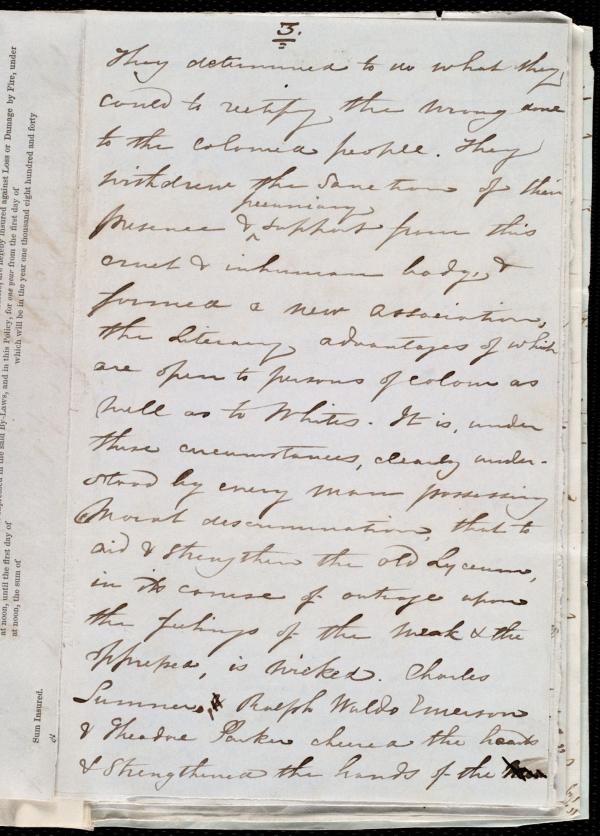 3.
They determined to do what they
could to rectify the wrong done
to the colored people. They
withdrew the sanction of their
pecuniary
presence & support from this
cruel & inhuman body, &
formed a new association,
the Literary advantages of which
are open to persons of colour as
well as to Whites. It is, under
these circumstances, clearly under-
stood by every man possessing
moral discrimination, that to
aid & strengthen the old Lyceum,
in its course of outrage upon
the feelings of the weak & the
oppressed, is wicked. Charles
Sumner, Ralph Waldo Emerson
& Theodore Parker cheered the hearts
& strengthened the hands of the
expressed in the said By-Laws, and in this Policy, for one year from the first day of
are hereby insured against Loss or Damage by Fire, under
which will be in the year one thousand eight hundred and forty
at noon, until the first day of
at noon, the sum of
Sum Insured.